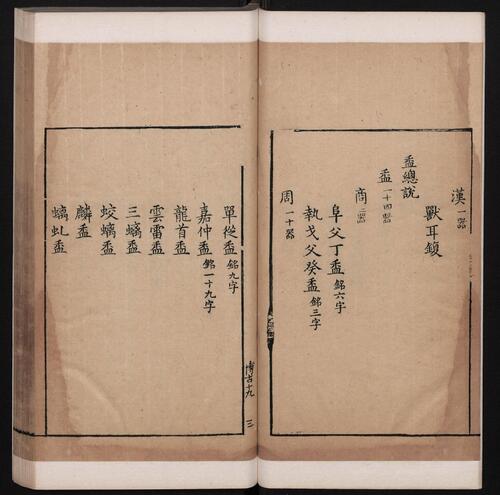 漢一器
獸耳鍑
盉總說
盉一十四器
商二器
阜父丁盉銘六字
執戈父癸盉銘三字
周一十器
單從盉銘九字
嘉仲盉銘一十九字
龍首盉
雲雷盉
三螭盉
蛟螭盉
麟盉
螭虬盉
博古十九
三